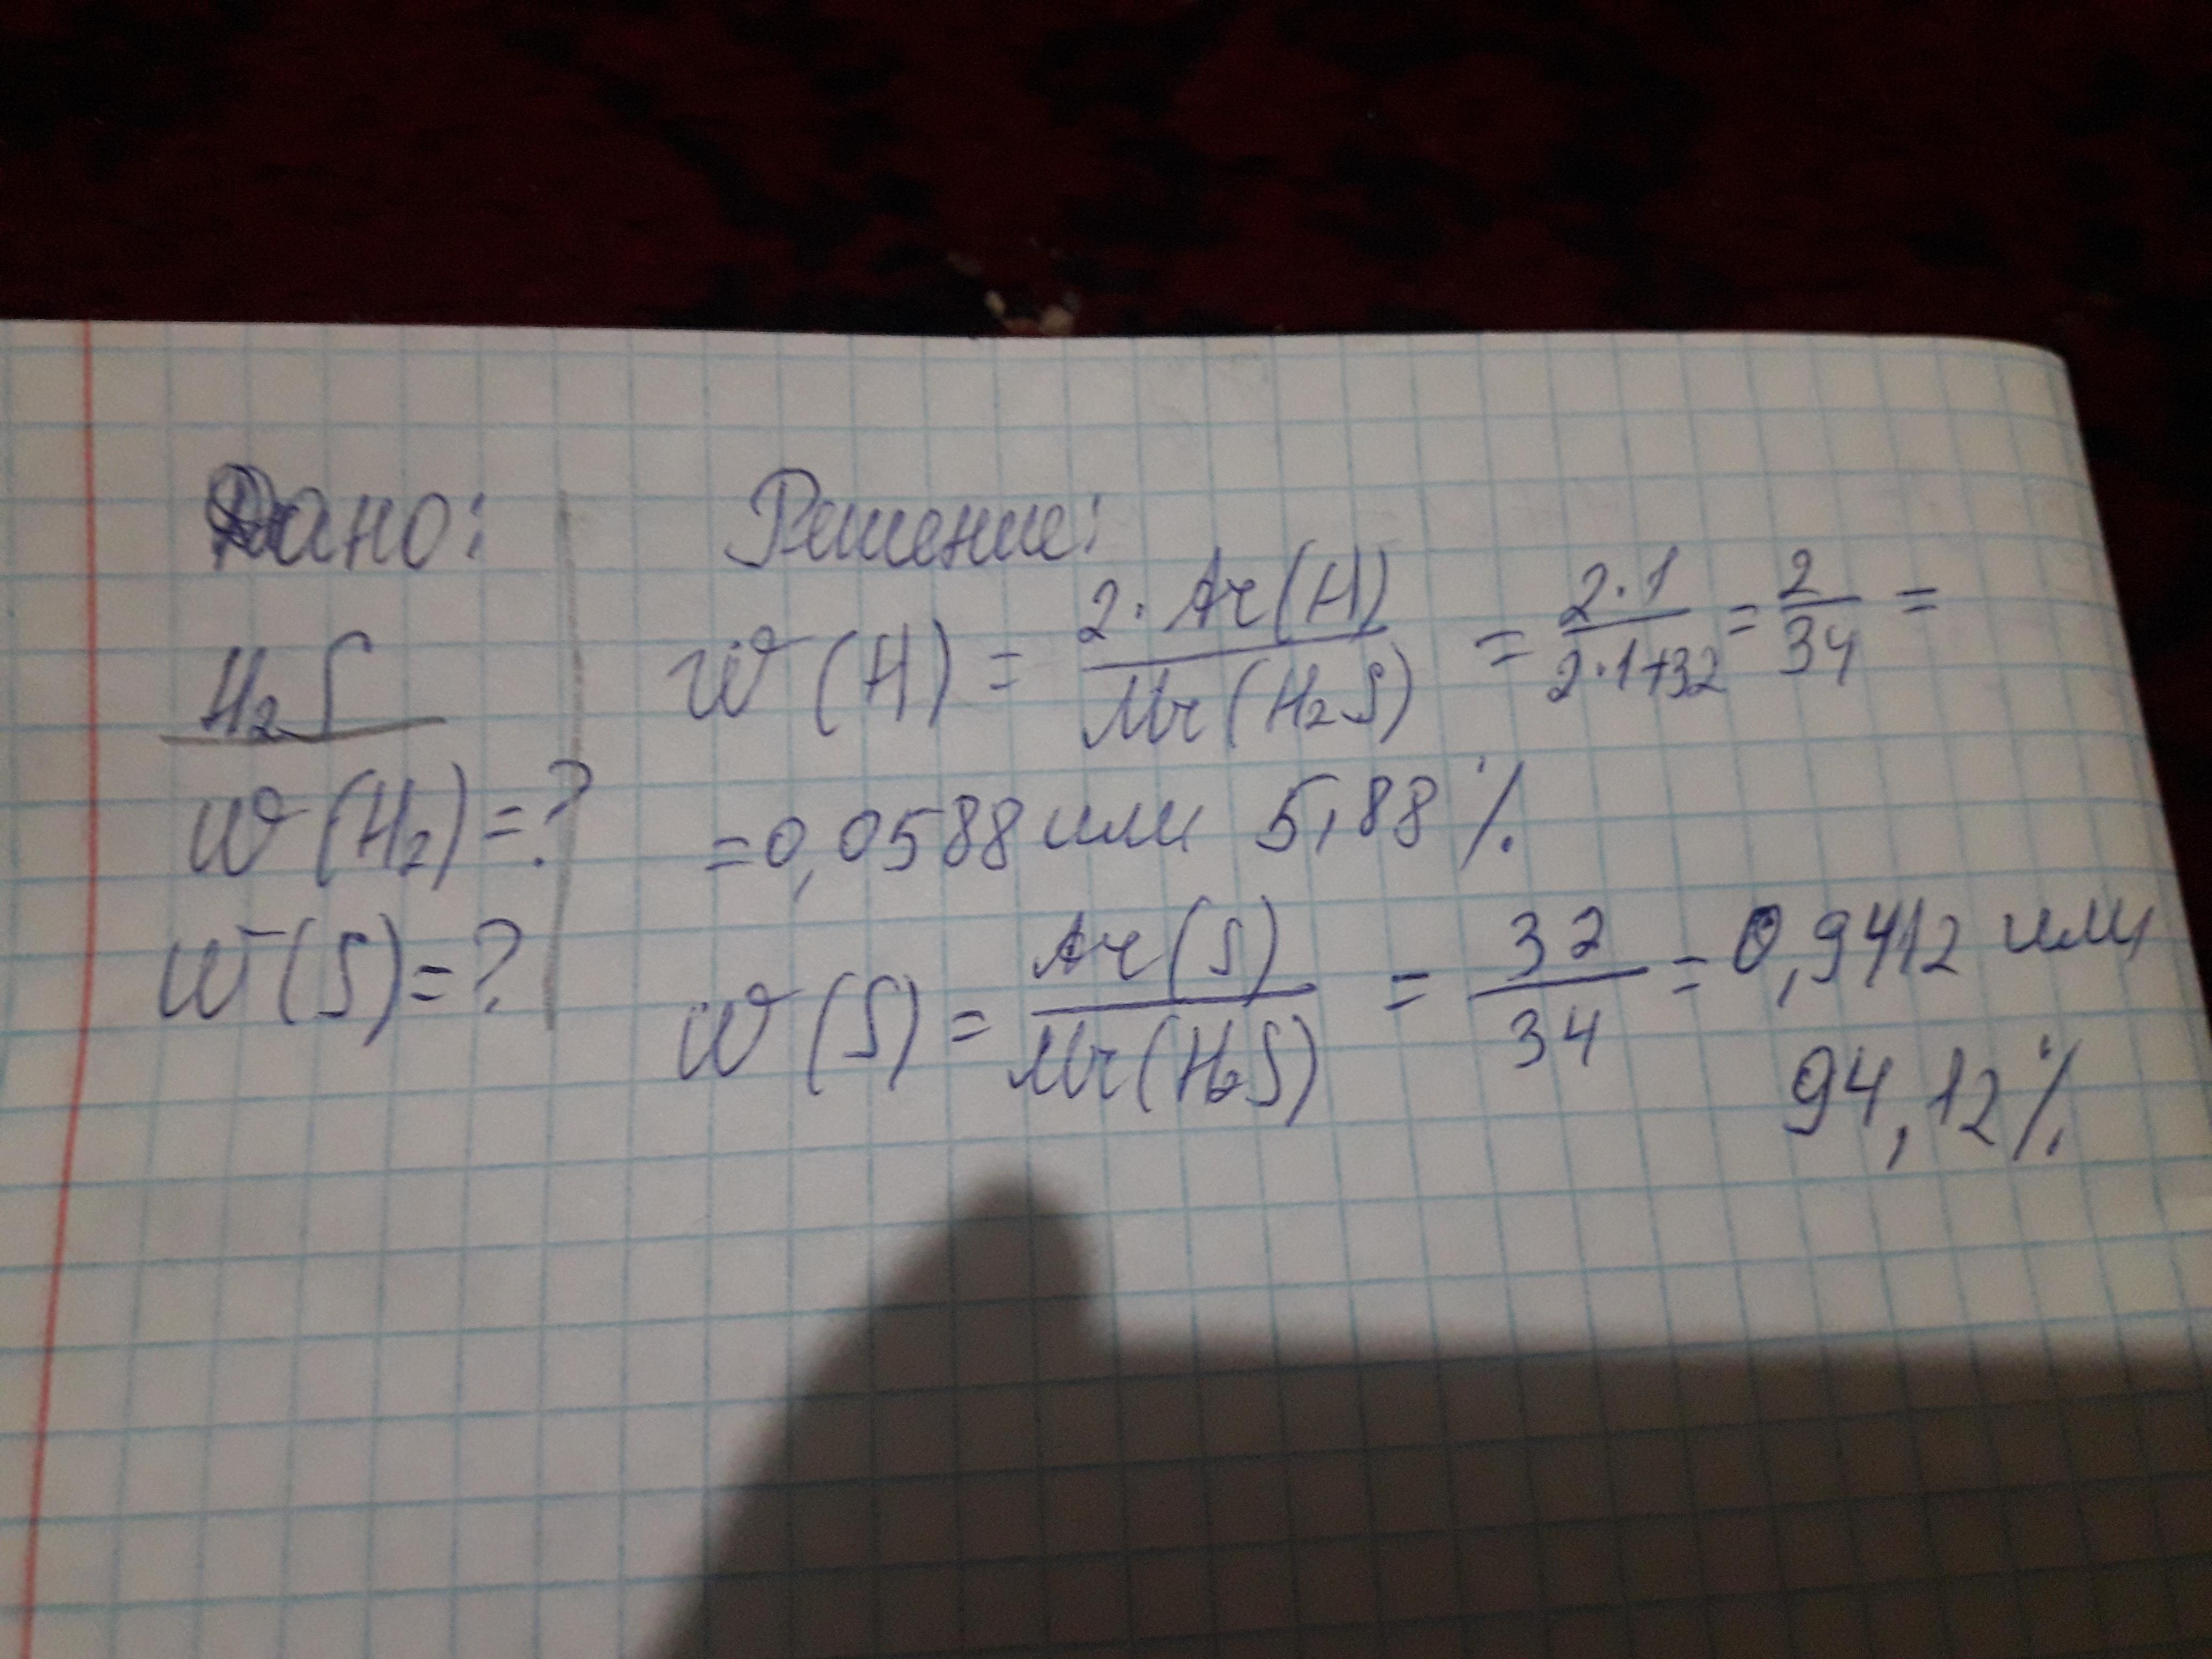 Дано:
H₂S
W(H₂)=?
W(S)=?
Решение:
W(H) = 2·Ar(H) / Mr(H₂S) = 2·1 / 2·1+32 = 2/34 =
=0,0588 или 5,88%
W(S) = Ar(S) / Mr(H₂S) = 32/34 = 0,9412 или
94,12%